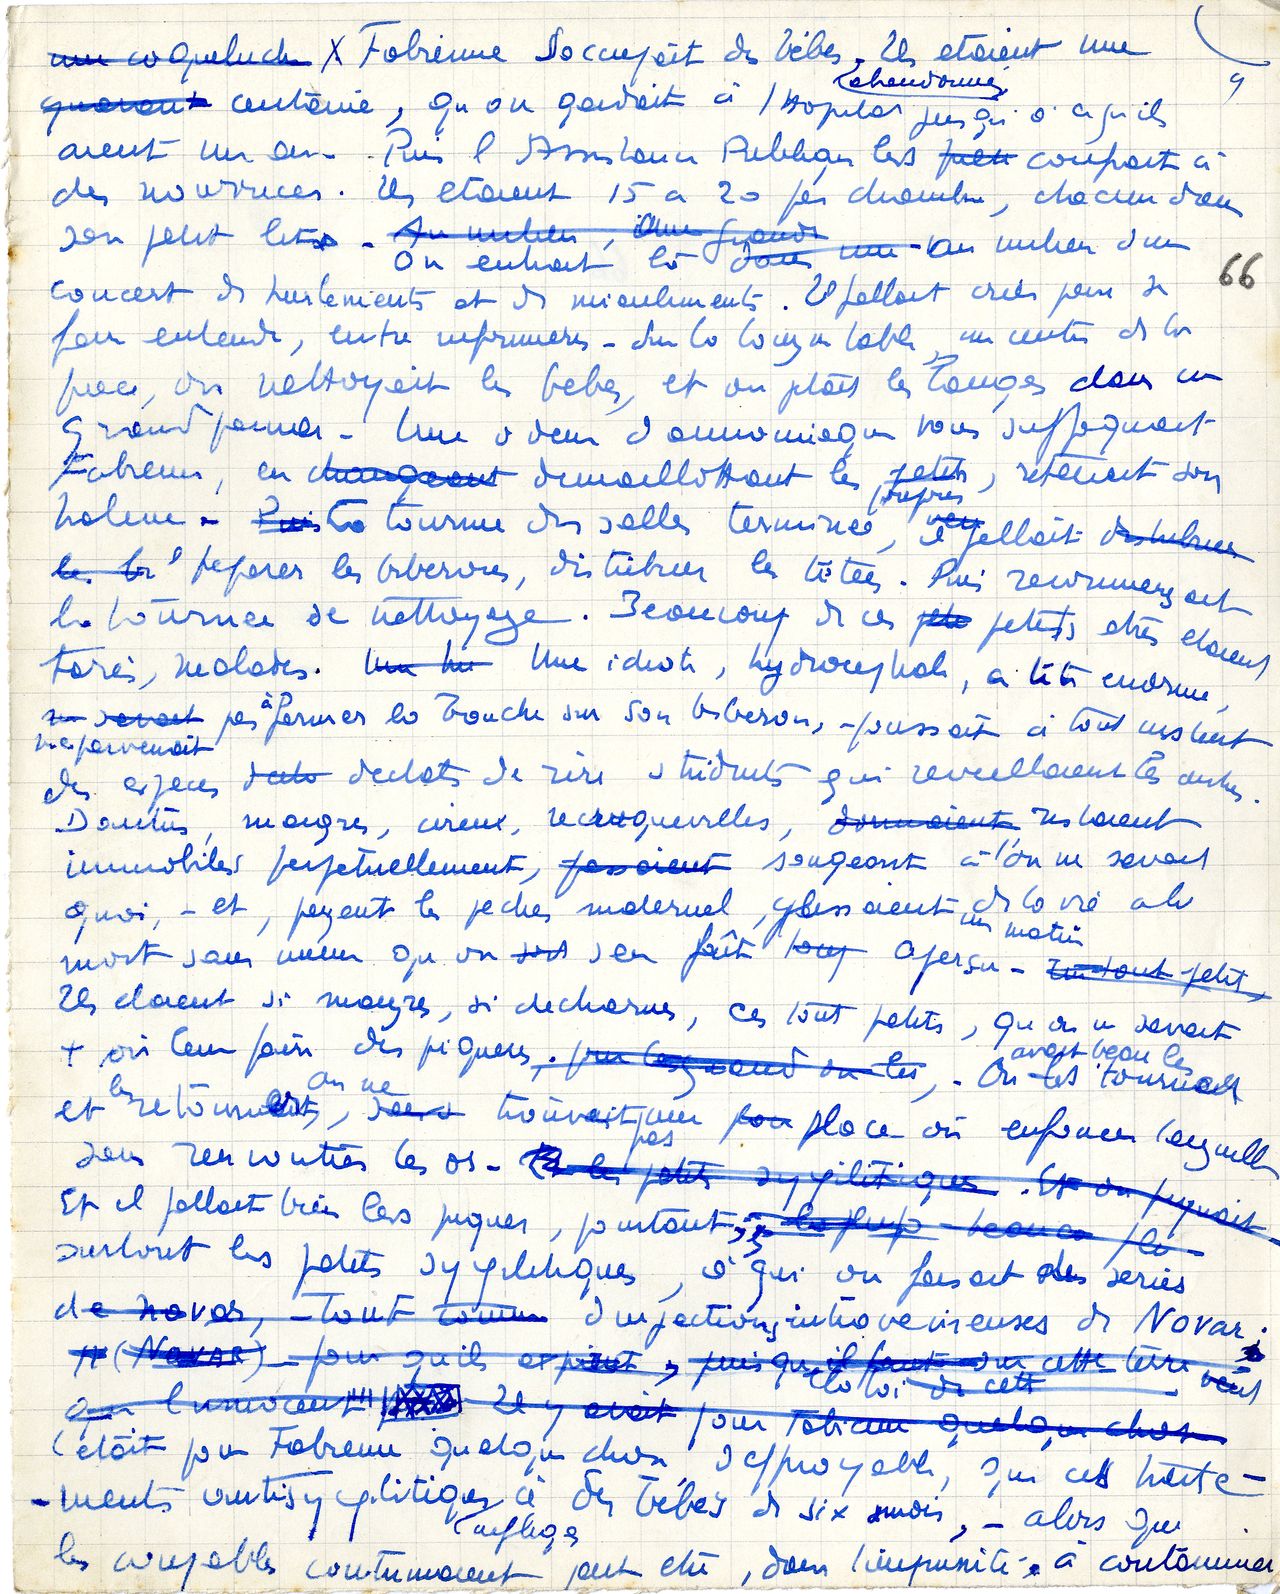 une coqueluche X Fabienne s'occupait des bébés. Ils étaient une
9
quarant centaine, qu'on gardait à l'Hopital jusqu'à ce qu'ils
abandonnés
aient un an. Puis l'Assistance Publique les confiait à
des nourrices. Ils étaient 15 à 20 par chambre, chacun dans
son petit lit. Au milieu, une grande
On entrait là dans une au milieu d'un
66
concert de hurlements et de miaulements. Il fallait crier pour se
faire entendre, entre infirmières - Sur la longue table, au centre de la
pièce, on nettoyait les bébés, et on jetait les langes dans un
grand panier - Une odeur d'ammoniaque vous suffoquait
Fabienne, en changeant démaillottant les petits, retenait son
haleine - Puis La tournée des salles terminée, il fallait distribuer
préparer les biberons, distribuer les tétées. Puis recommençait
la tournée de nettoyage. Beaucoup de ces petits êtres étaient
tarés, malades. Une idiote, hydrocéphale, à tête énorme,
ne savait pas à fermer la bouche sur son biberon, - poussait à tout instant
ne parvenait
des espèces d'éclats de rire stridents qui réveillaient les autres.
D'autres, maigres, cireux, recroquevillés, dormaient restaient
immobiles perpétuellement, songeant à l'on ne savait
quoi, - et, payant le péché maternel, glissaient de la vie à la
un matin
mort sans même qu'on s'en fût aperçu - Un tout petit,
Ils étaient si maigres, si décharnés, ces tout petits, qu'on ne savait
+ où leur faire des piqures. - On les tournait
avait beau les
et les retourner, on ne trouvait pas une place où enfoncer l'aiguille
sans rencontrer les os - Et les petits syphilitiques. Et on piquait
Et il fallait bien les piquer, pourtant,
surtout les petits syphilitiques, à qui on faisait des séries
de novar, - tout comme d'injections intraveineuses de Novar.
(NOVAR) - pour qu'ils expient, puisqu'il faut sur cette terre
la loi de cette veut
que l'innocent Il y avait pour Fabienne quelque chose
C'était pour Fabienne quelque chose d'effroyable, que ces traite-
-ments antisyphilitiques à des bébés de six mois, - alors que
infligés
les coupables continuaient peut être, dans l'impunité, à contaminer